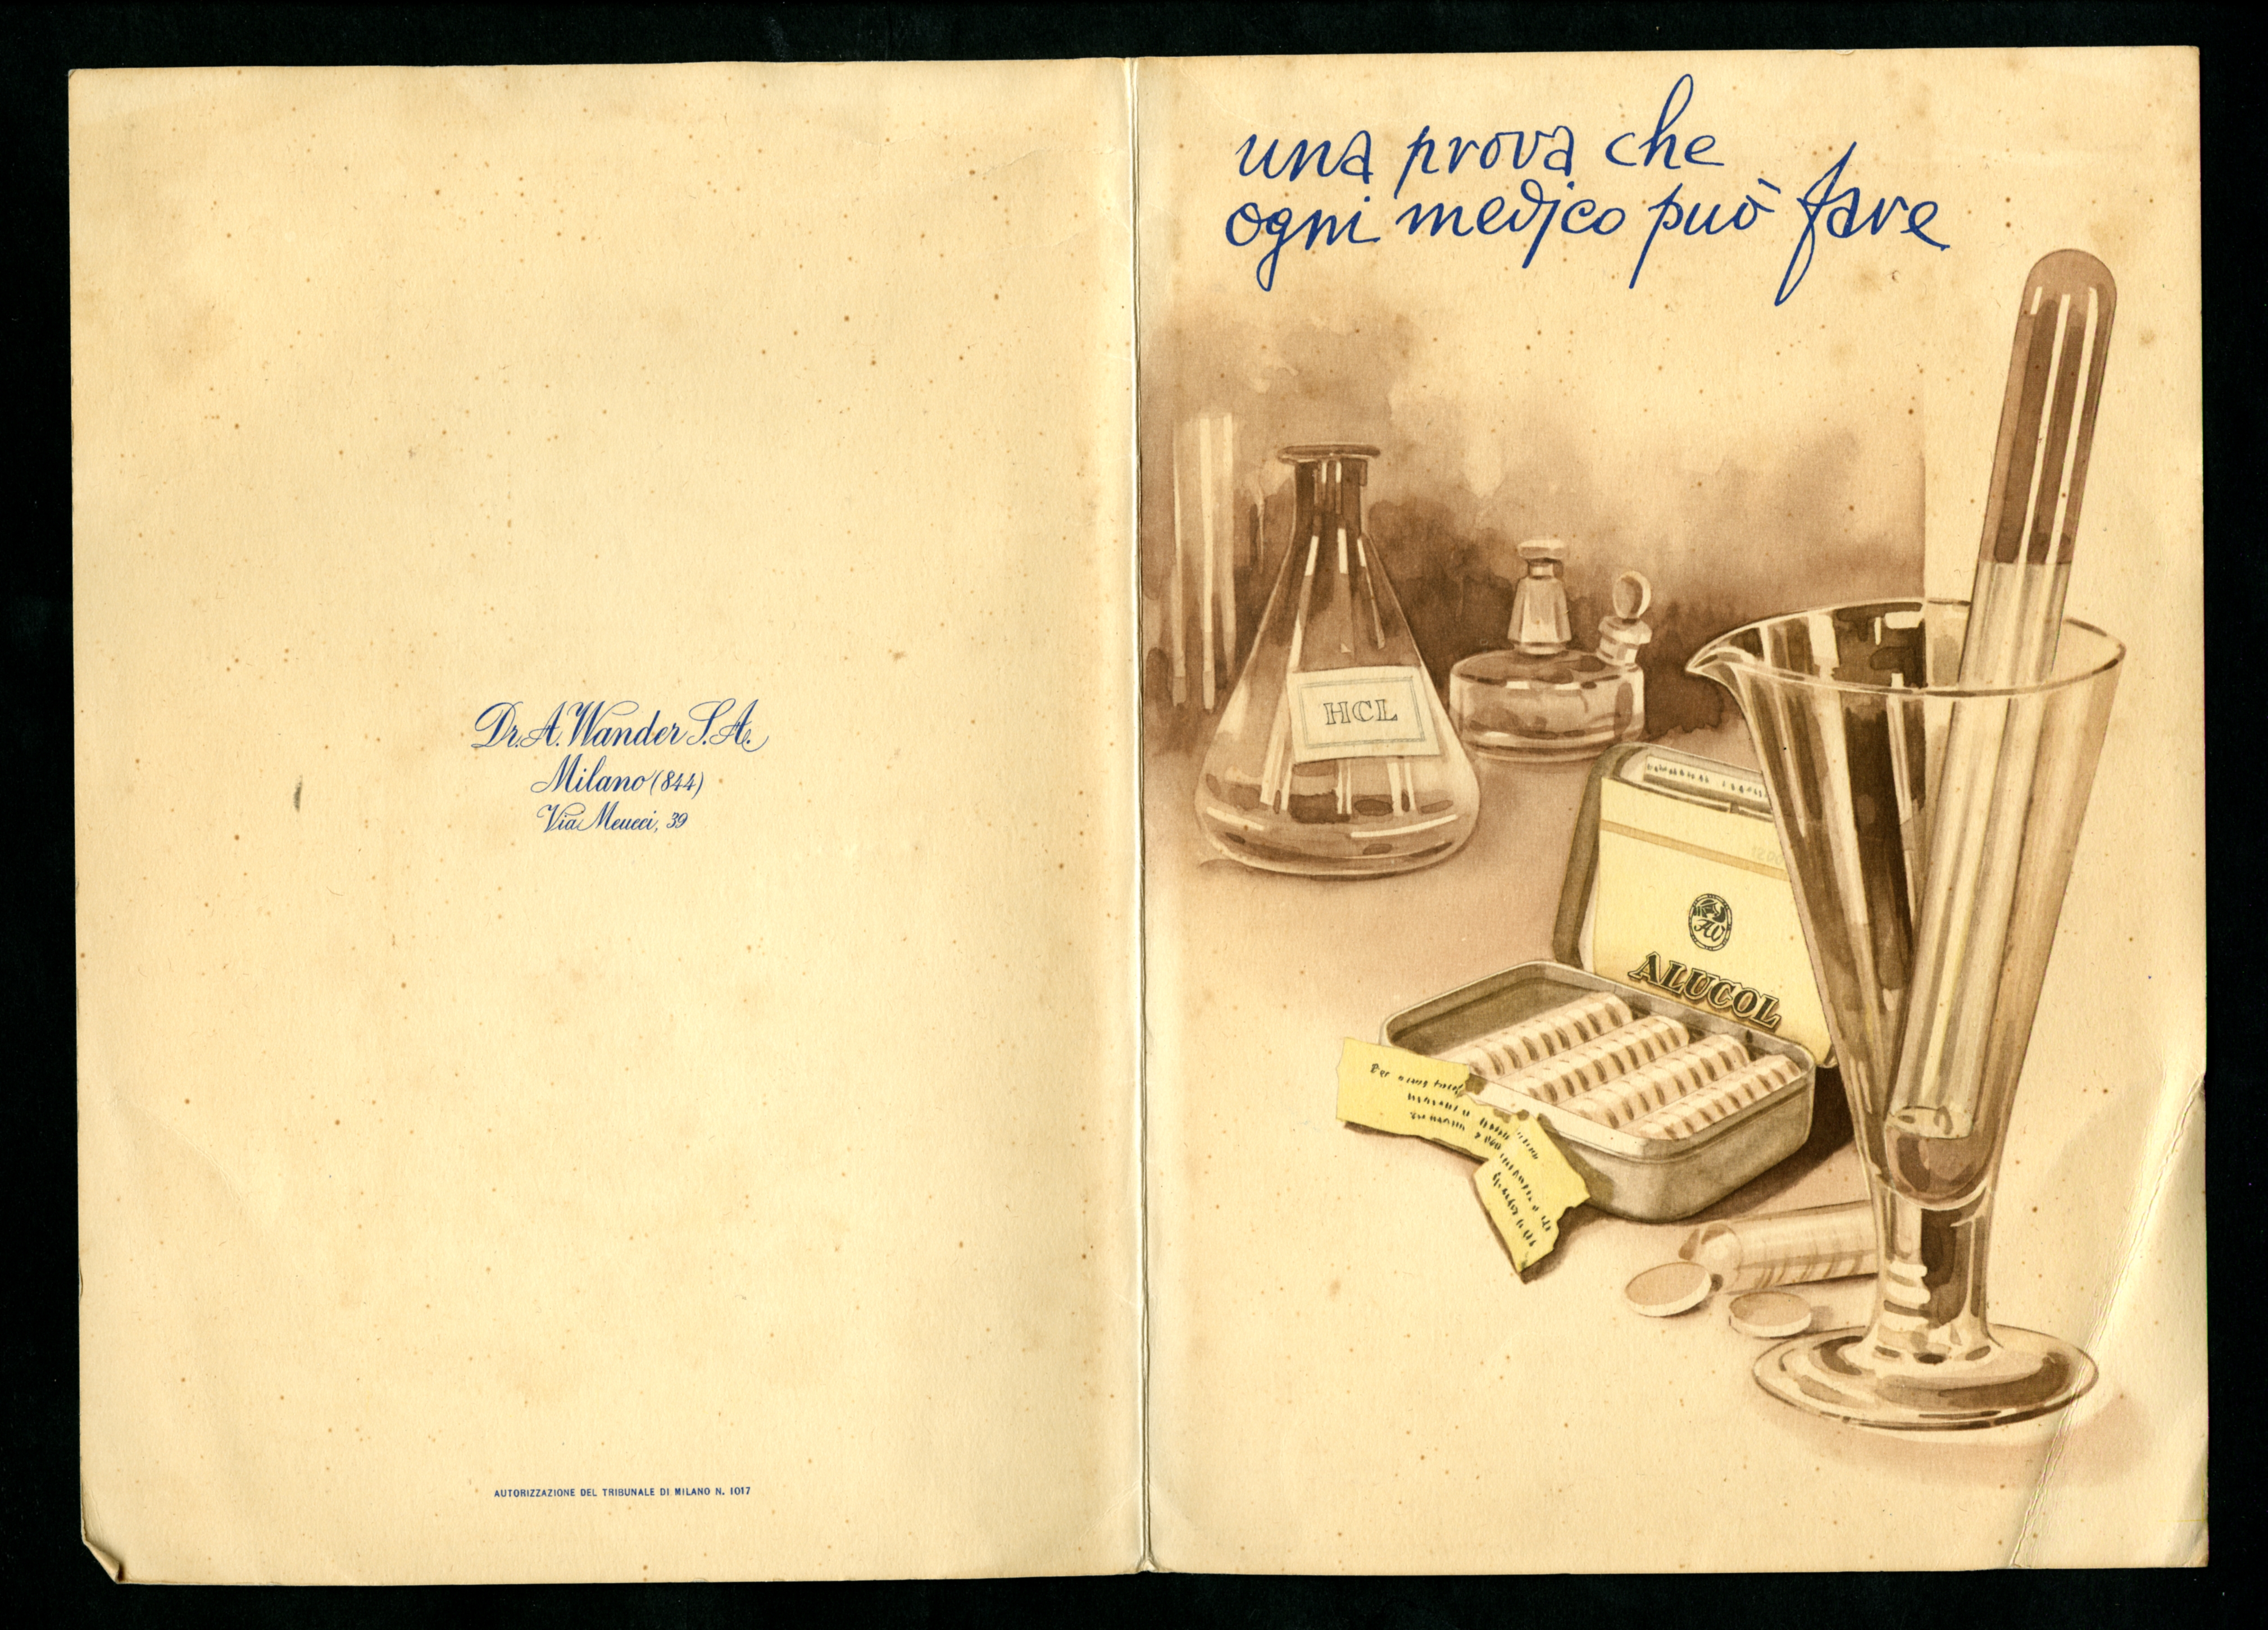 Dr. A. Wander S.A.
Milano (844)
Via Meucci, 39
AUTORIZZAZIONE DEL TRIBUNALE DI MILANO N. 1017
una prova che
ogni medico può fare
HCL
AW
ALUCOL